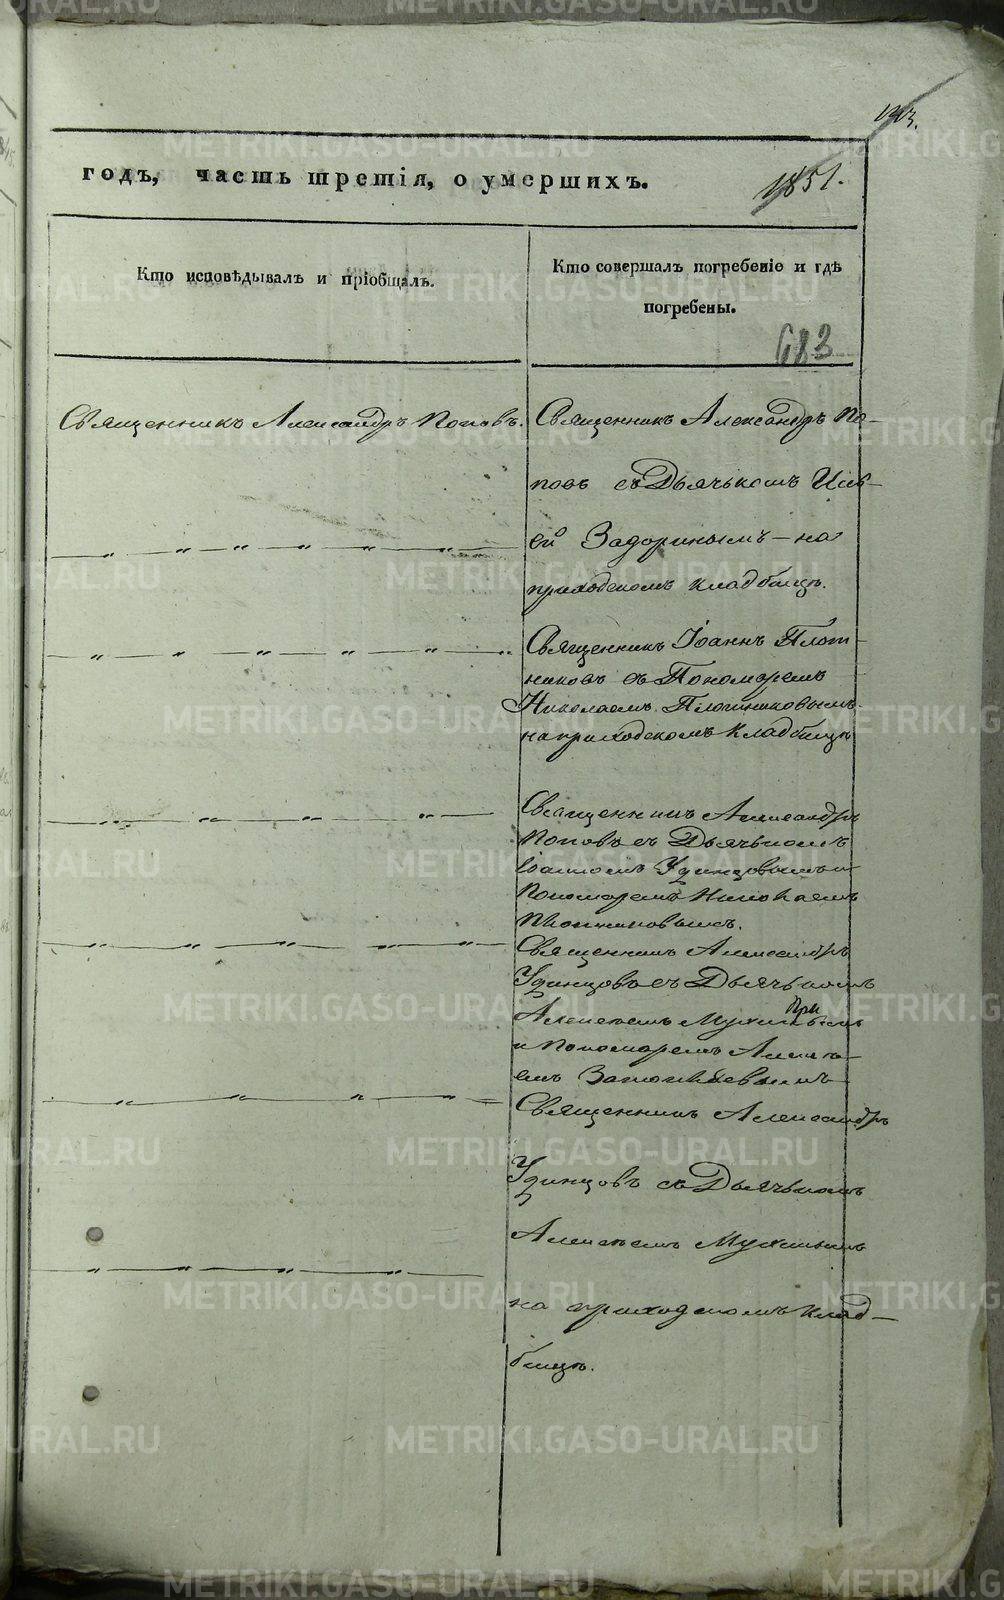 годъ, часть третія, о умершихъ.
1851.
Кто исповѣдывалъ и пріобщалъ.
Кто совершалъ погребеніе и гдѣ
погребены.
683
Священникъ Александръ Поповъ.
Священникъ Александръ По-
повъ съ Дьячькомъ Иль-
ей Задоринымъ - на
приходскомъ кладбищѣ.
Священникъ Іоаннъ Плот-
никовъ съ Пономаремъ
Николаемъ Плотниковымъ
на приходскомъ кладбищѣ
Священникъ Александръ
Поповъ съ Дьячькомъ
Іоанномъ Удинцовымъ и
Пономаремъ Николаемъ
Плотниковымъ.
Священникъ Александръ
Удинцовъ съ Дьячькомъ
Алексѣемъ
при
и Пономаремъ Алексѣ-
емъ
Священникъ Александръ
Удинцовъ съ Дьячькомъ
Алексѣемъ
на приходскомъ клад-
бищѣ.
METRIKI.GASO-URAL.RU